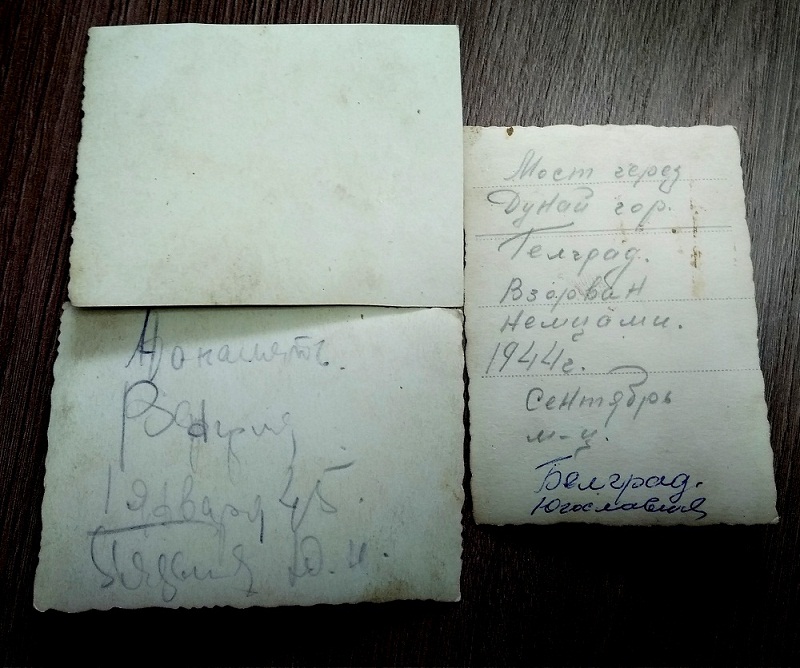 На память.
Венгрия
1 января 45.
Ю. И.
Мост через
Дунай гор.
Белград.
Взорван
немцами.
1944г.
Сентябрь
м-ц.
Белград.
Югославия